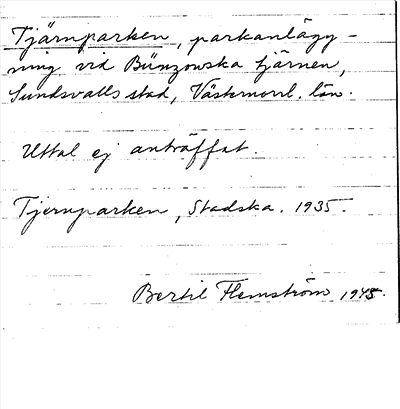 Tjärnparken, parkanlägg-
ning vid Bünzowska tjärnen,
Sundsvalls stad, Västernorrl. län.
Uttal ej anträffat.
Tjernparken, Stadska. 1935.
Bertil Flemström 1945.